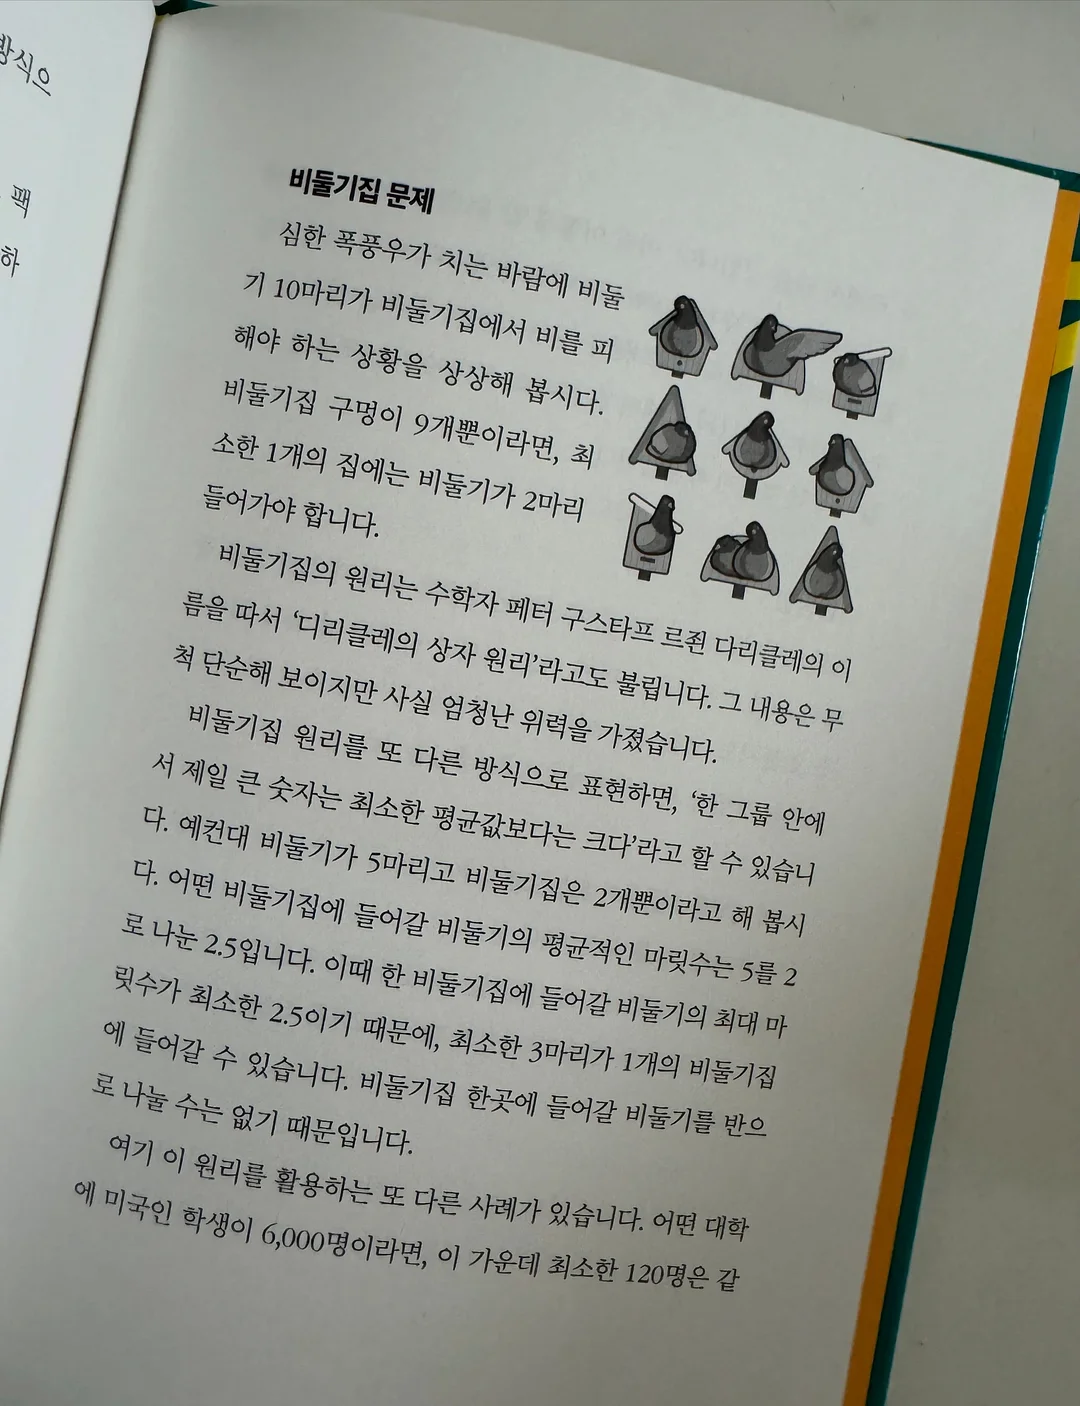 방식으
팩
하
비둘기집 문제
심한 폭풍우가 치는 바람에 비둘
기 10마리가 비둘기집에서 비를 피
해야 하는 상황을 상상해 봅시다.
비둘기집 구멍이 9개뿐이라면, 최
소한 1개의 집에는 비둘기가 2마리
들어가야 합니다.
비둘기집의 원리는 수학자 페터 구스타프 르죈 다리클레의 이
름을 따서 ‘디리클레의 상자 원리’라고도 불립니다. 그 내용은 무
척 단순해 보이지만 사실 엄청난 위력을 가졌습니다.
비둘기집 원리를 또 다른 방식으로 표현하면, ‘한 그룹 안에
서 제일 큰 숫자는 최소한 평균값보다는 크다’라고 할 수 있습니
다. 예컨대 비둘기가 5마리고 비둘기집은 2개뿐이라고 해 봅시
다. 어떤 비둘기집에 들어갈 비둘기의 평균적인 마릿수는 5를 2
로 나눈 2.5입니다. 이때 한 비둘기집에 들어갈 비둘기의 최대 마
릿수가 최소한 2.5이기 때문에, 최소한 3마리가 1개의 비둘기집
에 들어갈 수 있습니다. 비둘기집 한곳에 들어갈 비둘기를 반으
로 나눌 수는 없기 때문입니다.
여기 이 원리를 활용하는 또 다른 사례가 있습니다. 어떤 대학
에 미국인 학생이 6,000명이라면, 이 가운데 최소한 120명은 같